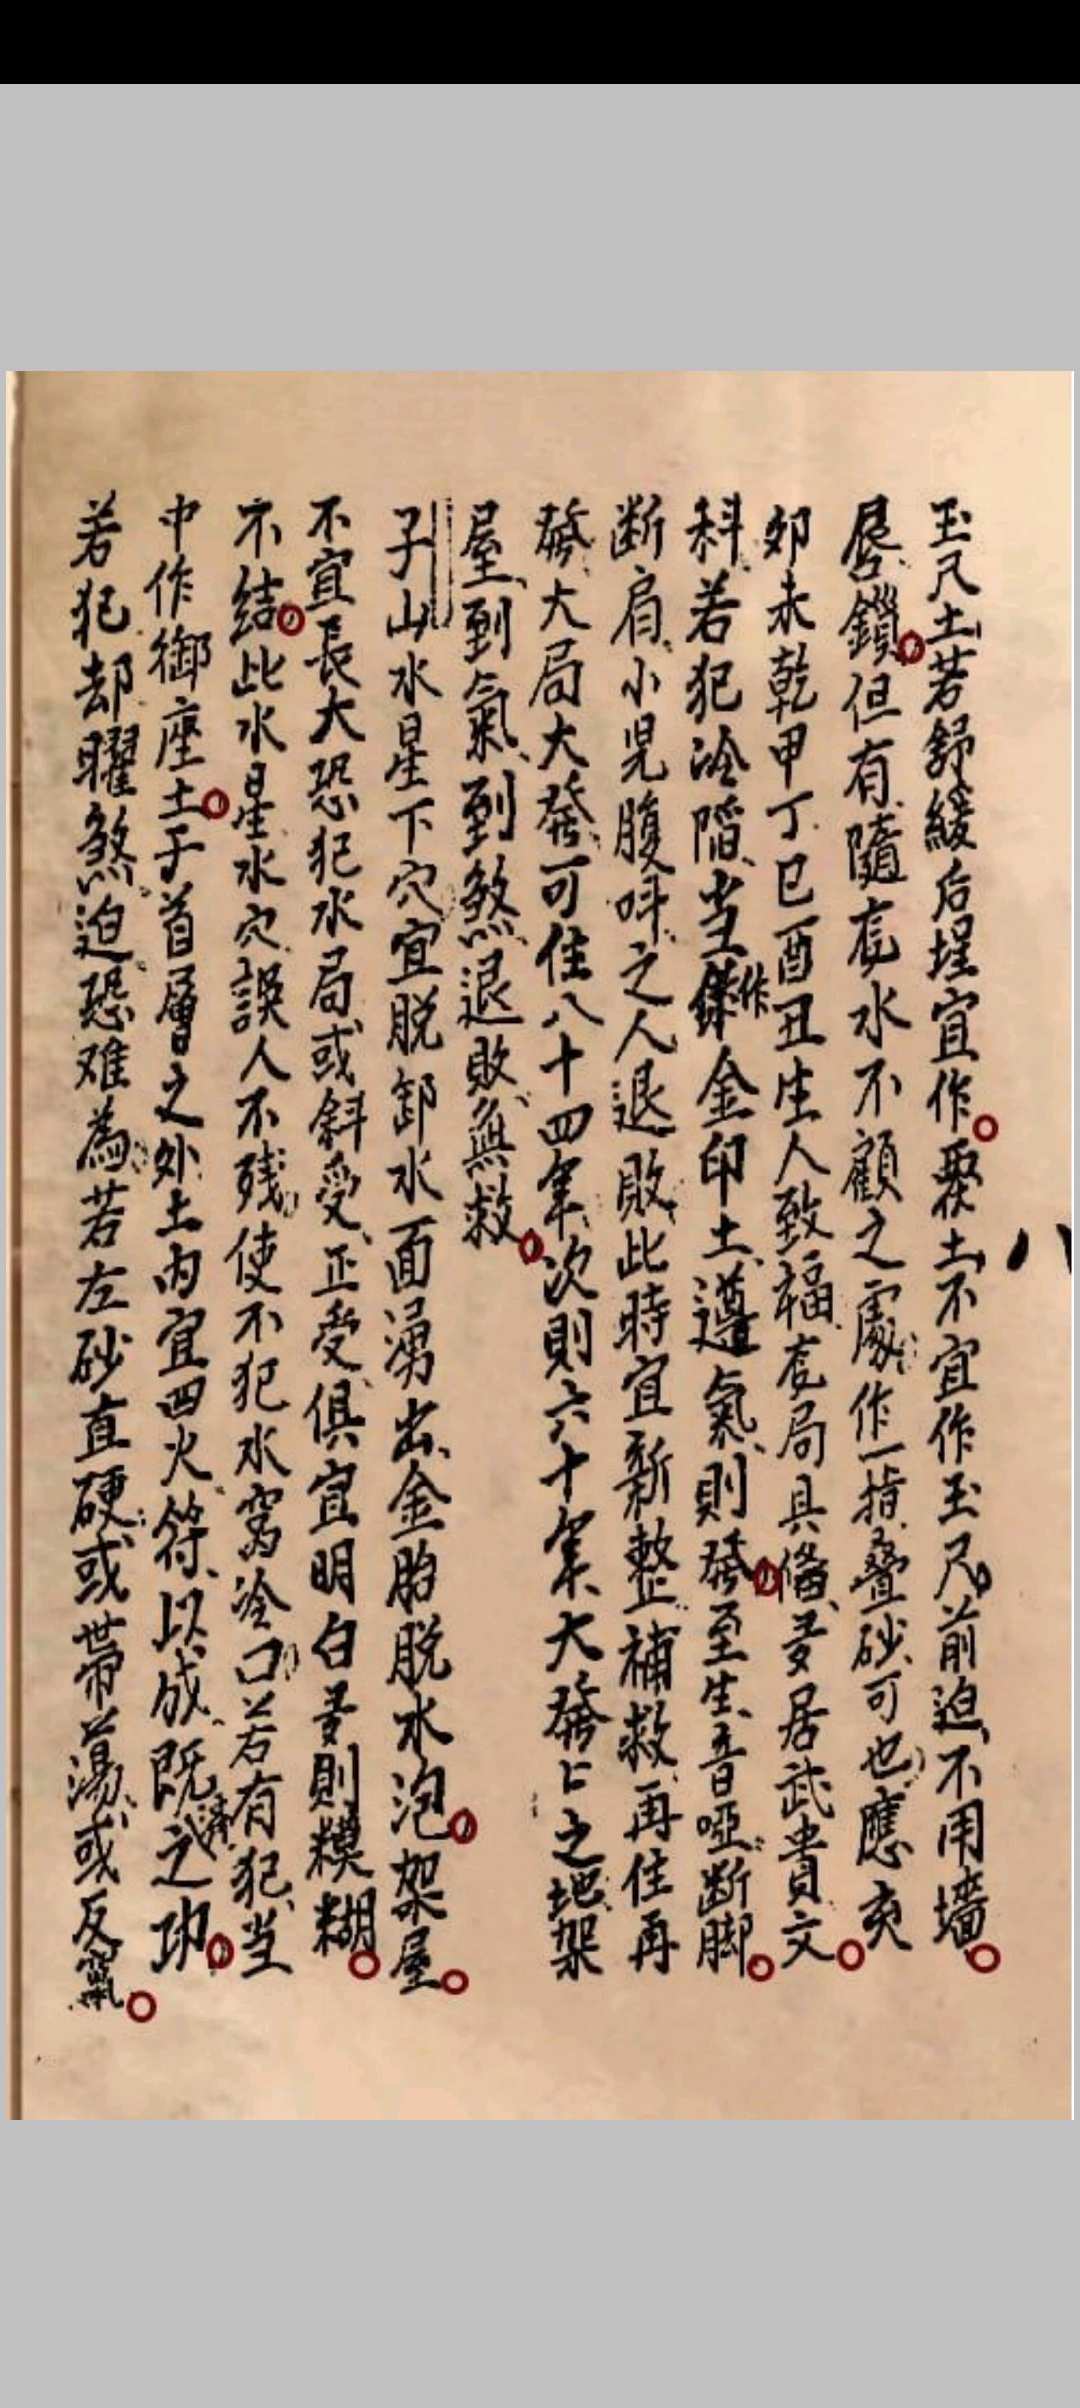 玉尺土若舒緩后埕宜作聚土不宜作玉尺前迫不用墻
唇鎖但有隨龙水不顧之處作一指叠砂可也應亥
卯未乾甲丁巳酉丑生人致福龙局具备居武貴文
科若犯冷陷当作金印土遵氣則發至生音啞断脚
断肩小児腹呌之人退敗此時宜新整補救再住再
發大局大發可住八十四年次則六十年大發之地架
屋到氣到煞退敗無救
子山水星下穴宜脱卸水面湧出金胎脱水泡架屋
不宜長大恐犯水局或斜受正受俱宜明白則糢糊
不結此水星水穴誤人不残使不犯水窩冷口若有犯当
中作御座土于首層之外土内宜四火符以成既濟之功
若犯却曜煞迫恐难為若左砂直硬或带蕩或反竄
八